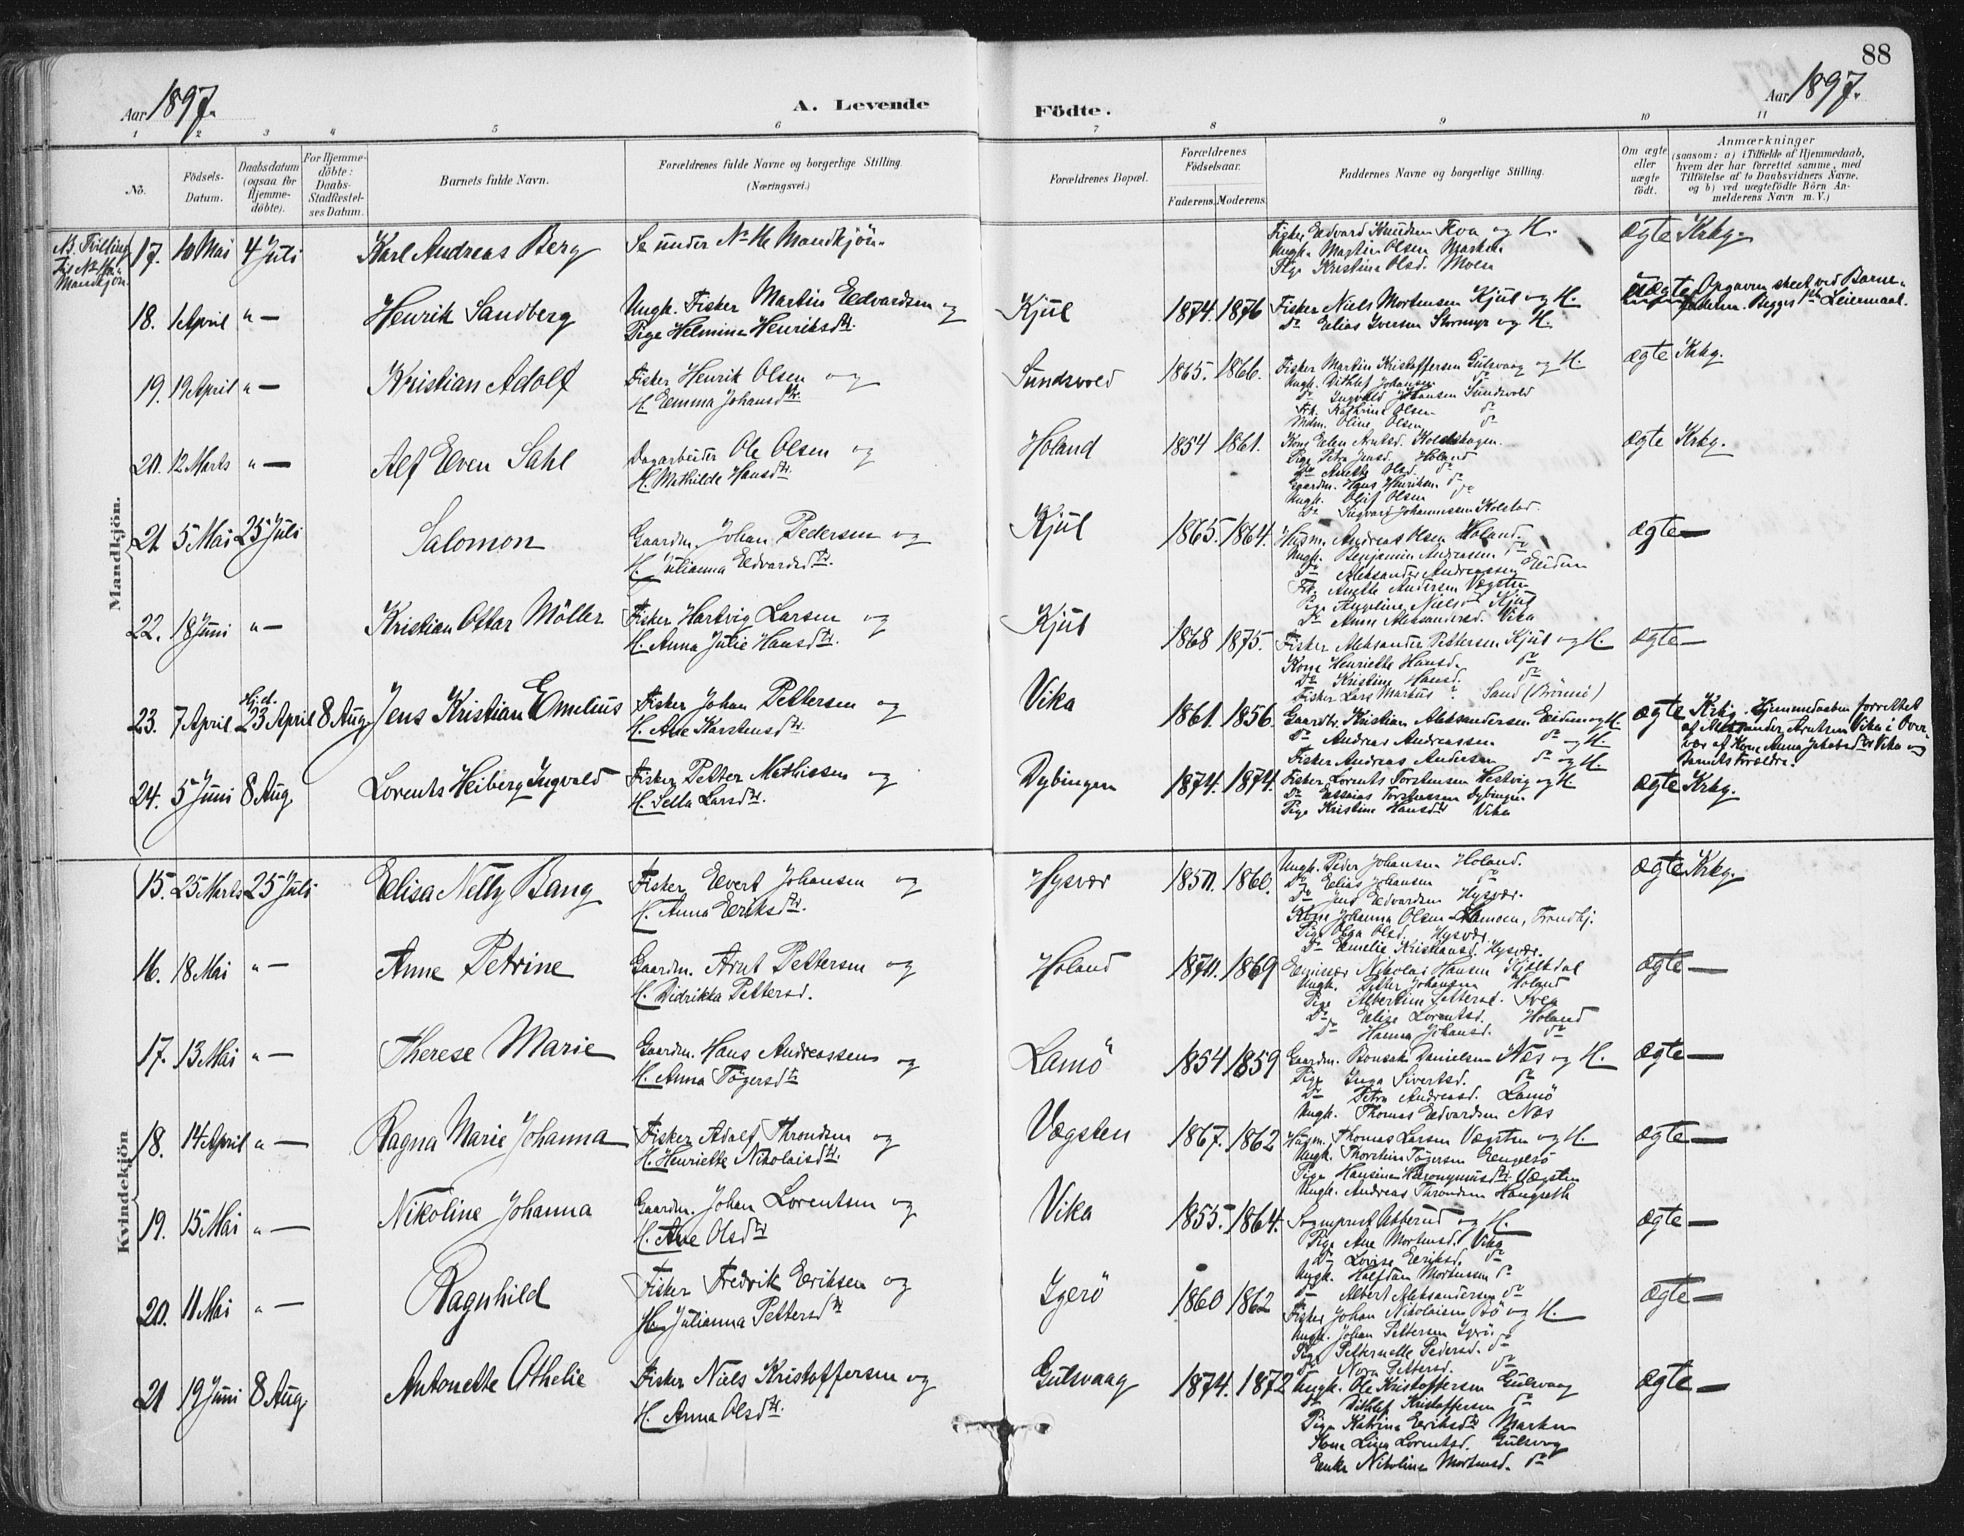 88
Aar 1897.
A. Levende Födte.
Aar 1897.
1 2 3 4 5 6 7 8 9 10 11
No.
Födsels-Datum.
Daabsdatum (ogsaa for Hjemme-döbte).
For Hjemme-döbte: Daabs-Stadfæstel-ses Datum.
Barnets fulde Navn.
Forældrenes fulde Navne og borgerlige Stilling. (Næringsvei.)
Forældrenes Bopæl.
Forældrenes Födselsaar.
Faderens. Moderens.
Faddernes Navne og borgerlige Stilling.
Om ægte eller uægte födt.
Anmærkninger
(saasom: a) i Tilfælde af Hjemmedaab,
hvem der har forrettet samme, med
Tilföielse af to Daabsvidners Navne.
og b) ved uægtefödte Börn An-
melderens Navn m. V.)
Mandkjön.
17. 10 Mai 4 Juli Karl Andreas Berg Se under No 16 Mandkjön.
Fisker Edvard Knudsen Kva og H.
Ungk. Martin Olsen Marken
Pige Kristina Olsd. Moen
ægte Krkg.
18. 1 April " — Henrik Sandberg Ungk. Fisker Martin Edvardsen og
Pige Helmina Henriksdtr.
Kjul 1874. 1876
Fisker Niels Mortensen Kjul og H.
Do Elias Iversen Stormyr og H.
uægte Opgaven skeet ved Barne-
faderen. Begges 1ste Leiermaal.
19. 19 April " — Kristian Adolf Fisker Henrik Olsen og
H. Emma Johansdtr.
Sundsvold 1865. 1866.
Fisker Martin Kristoffersen Gulsvaag og H.
Ungk. Ditlef Johansen do
Do Ingvald Johansen Sundsvold
Frk. Kathrine Olsen do
Mdm. Oline Olsen do
ægte Krkg.
20. 12 Marts " — Alf Even Sahl Dagarbeider Ole Olsen og
H. Mathilde Hansdtr.
Holand 1854 1861.
Kone Elen Arntsd.
Pige Petra Jensd. Holand
Do Anette Olsd. do
Gaardm. Hans Henriksen do
Ungk. Oluf Olsen do
Do Sigvard Johannessen Kolstad
ægte Krkg.
21. 5 Mai 25 Juli Salomon Gaardm. Johan Pedersen og
H. Julianna Edvardsdtr.
Kjul 1865. 1864.
Husm. Andreas Olsen Holand.
Ungk. Benjamin Andreasen do
Do Aleksander Andreassen Eidem
Frk. Anette Andersen Vægsten
Pige Angeline Nielsd. Kjul
Do Anne Aleksandersd. Vika
ægte —
22. 18 Juni " — Kristian Ottar Möller Fisker Hartvig Larsen og
H. Anna Julie Hansdtr.
Kjul 1868 1875.
Fisker Aleksander Pettersen Kjul og H.
Kone Henriette Hansd. do
Do Kristine Hansd. do
Fisker Lars Markus ? Sand (Brönnö)
ægte —
23. 7 April Hjd. 23 April 8 Aug. Jens Kristian Emelius Fisker Johan Pettersen og
H. Ane Karstensdtr.
Vika 1861. 1856.
Gaardbr. Kristian Aleksandersen Eidem og H.
Do Andreas Andreassen do og H.
Fisker Andreas Andersen do og H.
ægte Krkg. Hjemmedaaben forrettet
af Aleksander Arntsen Vika i Over-
vær af Kone Anna Jakobsdtr Vika og
Barnets Forældre.
24. 5 Juni 8 Aug. Lorents Heiberg Ingvald Fisker Petter Mathissen og
H. Sella Larsdtr.
Dybingen 1874. 1874.
Fisker Lorents Torstensen Hestvig og H.
Do Essaias Torstensen Dybingen
Pige Kristine Hansdtr Vika
ægte Krkg.
Kvindekjön
15. 25 Marts 25 Juli Elisa Netty Bang Fisker Evert Johansen og
H. Anna Eriksdtr.
Hysvær 1850. 1860.
Ungk. Peder Johansen Holand.
Do Elias Johansen do
Do Jens Edvardsen Hysvær.
Kone Johanna Olsen Lamoen, Trondhj.
Pige Olga Olsd. Hysvær
Do Emelie Kristiansd. Hysvær.
ægte Krkg.
16. 18 Mai " — Anne Petrine Gaardm. Arnt Pettersen og
H. Didrikka Pettersd.
Holand 1870. 1869
Emissær Nikolai Hansen
Ungk. Petter Johansen Holand
Pige Albertine Pettersd.
Do Elise Lorentsd. Holand
Do Hanna Johansd. do
ægte —
17. 13 Mai " — Therese Marie Gaardm. Hans Andreassen og
H. Anna Tögersdtr
Lamö 1854 1859
Gaardm. Bonsak Danielsen Næs og H.
Pige Inga Sivertsd. do
Do Petra Andreasd. Lamö
Ungk. Thomas Edvardsen Næs
ægte —
18. 14 April " — Ragna Marie Johanna Fisker Adolf Throndsen og
H. Henriette Nikolaisdtr.
Vægsten 1867. 1862
Husm. Thomas Larsen Vægsten og H.
Ungk. Thorstein Tögersen Rengsö
Pige Hansina Hieronymusdtr Vægsten
Ungk. Andreas Throndsen Hangseth
ægte —
19. 15 Mai " — Nikoline Johanna Gaardm. Johan Lorentsen og
H. Ane Olsdtr
Vika 1855. 1864.
Sogneprest Atterud og H.
Pige Ane Mortensd. Vika
Do Lovise Eriksd. do
Ungk. Halfdan Mortensen do
Do Albert Aleksandersen do
ægte —
20. 11 Mai " — Ragnhild Fisker Fredrik Eriksen og
H. Julianna Pettersdtr
Igerö 1860 1862
Fisker Johan Nikolaisen Bö og H.
Ungk. Johan Pettersen Igerö
Pige Petternelle Pedersd. do
Do Nora Pettersd. do
ægte —
21 19 Juni 8 Aug. Antonette Othelie Fisker Niels Kristoffersen og
H. Anna Olsdtr.
Gulsvaag 1874. 1872
Ungk. Ole Kristoffersen Gulsvaag
Do Ditlef Kristoffersen do
Pige Katrine Eriksdtr Marken
Kone Lina Lorentsd. Gulsvog
Enke Nikolina Mortensd. do
ægte —